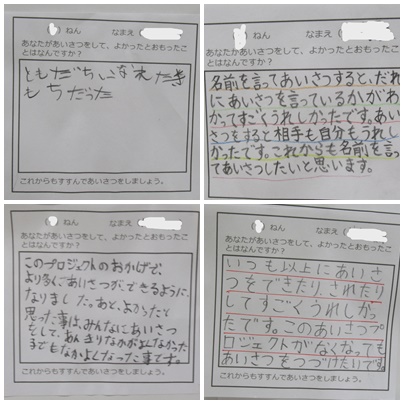 ねん
なまえ
あなたがあいさつをして、よかったとおもったこ
とはなんですか?
ともだちになれた
もちだった
これからもすすんであいさつをしましょう。
ねん
なまえ
あなたがあいさつをして、よかったとおもったこ
とはなんですか?
名前を言ってあいさつすると、だれ
にあいさつを言っているかがわ
かってすごくうれしかったです。あい
さつをすると相手も自分もうれし
かったです。これからも名前を言っ
てあいさつしたいと思います。
これからもすすんであいさつをしましょう。
ねん
なまえ
あなたがあいさつをして、よかったとおもったこ
とはなんですか?
このプロジェクトのおかげで、
より多くあいさつが、できるように、
なりました。あと、よかったと
思った事は、みんなにあいさつ
をして、あんまりなかがよくなかった
子でもなかよくなった事です。
これからもすすんであいさつをしましょう。
ねん
なまえ
あなたがあいさつをして、よかったとおもったこ
とはなんですか?
いつも以上にあいさ
つをできたり、されたり
してすごくうれしかっ
たです。このあいさつプ
ロジェクトがなくなっても
あいさつをつづけたいです。
これからもすすんであいさつをしましょう。